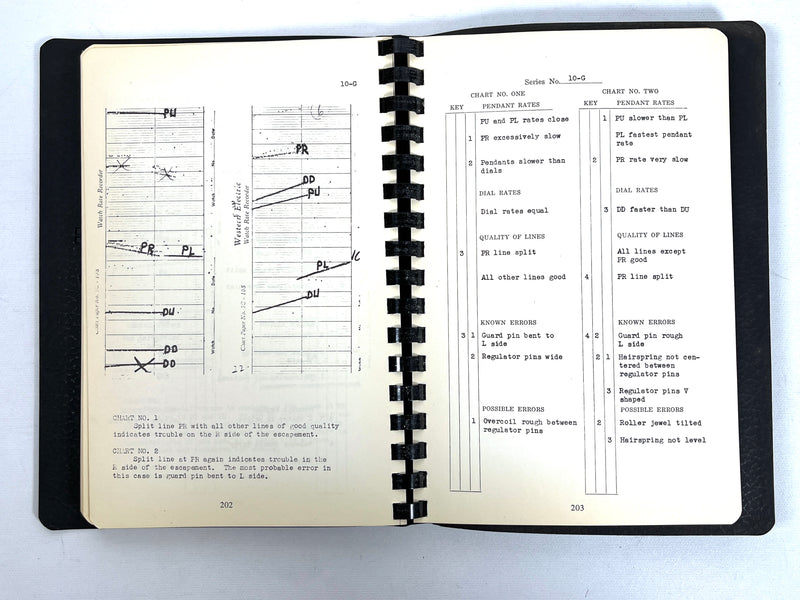 10-G
PU
PR
DD
PU
PR
PL
PL
DU
DU
DD
DD
Watch Rate Recorder
Western Electric
Watch Rate Recorder
CHART NO. 1
Split line PR with all other lines of good quality
indicates trouble on the R side of the escapement.
CHART NO. 2
Split line at PR again indicates trouble in the
R side of the escapement. The most probable error in
this case is guard pin bent to L side.
202
Series No. 10-G
CHART NO. ONE
KEY PENDANT RATES
PU and PL rates close
1 PR excessively slow
2 Pendants slower than
dials
DIAL RATES
Dial rates equal
QUALITY OF LINES
3 PR line split
All other lines good
KNOWN ERRORS
3 1 Guard pin bent to
L side
2 Regulator pins wide
POSSIBLE ERRORS
1 Overcoil rough between
regulator pins
CHART NO. TWO
KEY PENDANT RATES
1 PU slower than PL
PL fastest pendant
rate
2 PR rate very slow
DIAL RATES
3 DD faster than DU
QUALITY OF LINES
All lines except
PR good
4 PR line split
KNOWN ERRORS
4 2 Guard pin rough
L side
2 1 Hairspring not cen-
tered between
regulator pins
3 Regulator pins V
shaped
POSSIBLE ERRORS
2 Roller jewel tilted
3 Hairspring not level
203